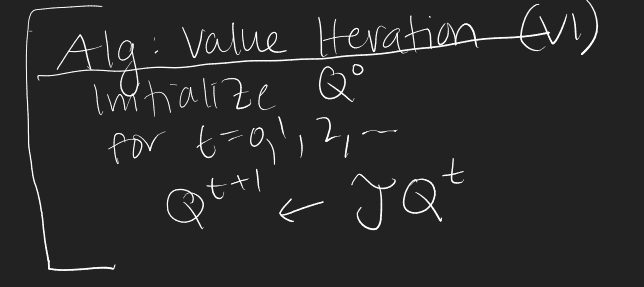 Alg: Value Iteration (VI)
Initialize Q⁰
for t=0,1,2,...
Qᵗ⁺¹ ← 𝒯Qᵗ